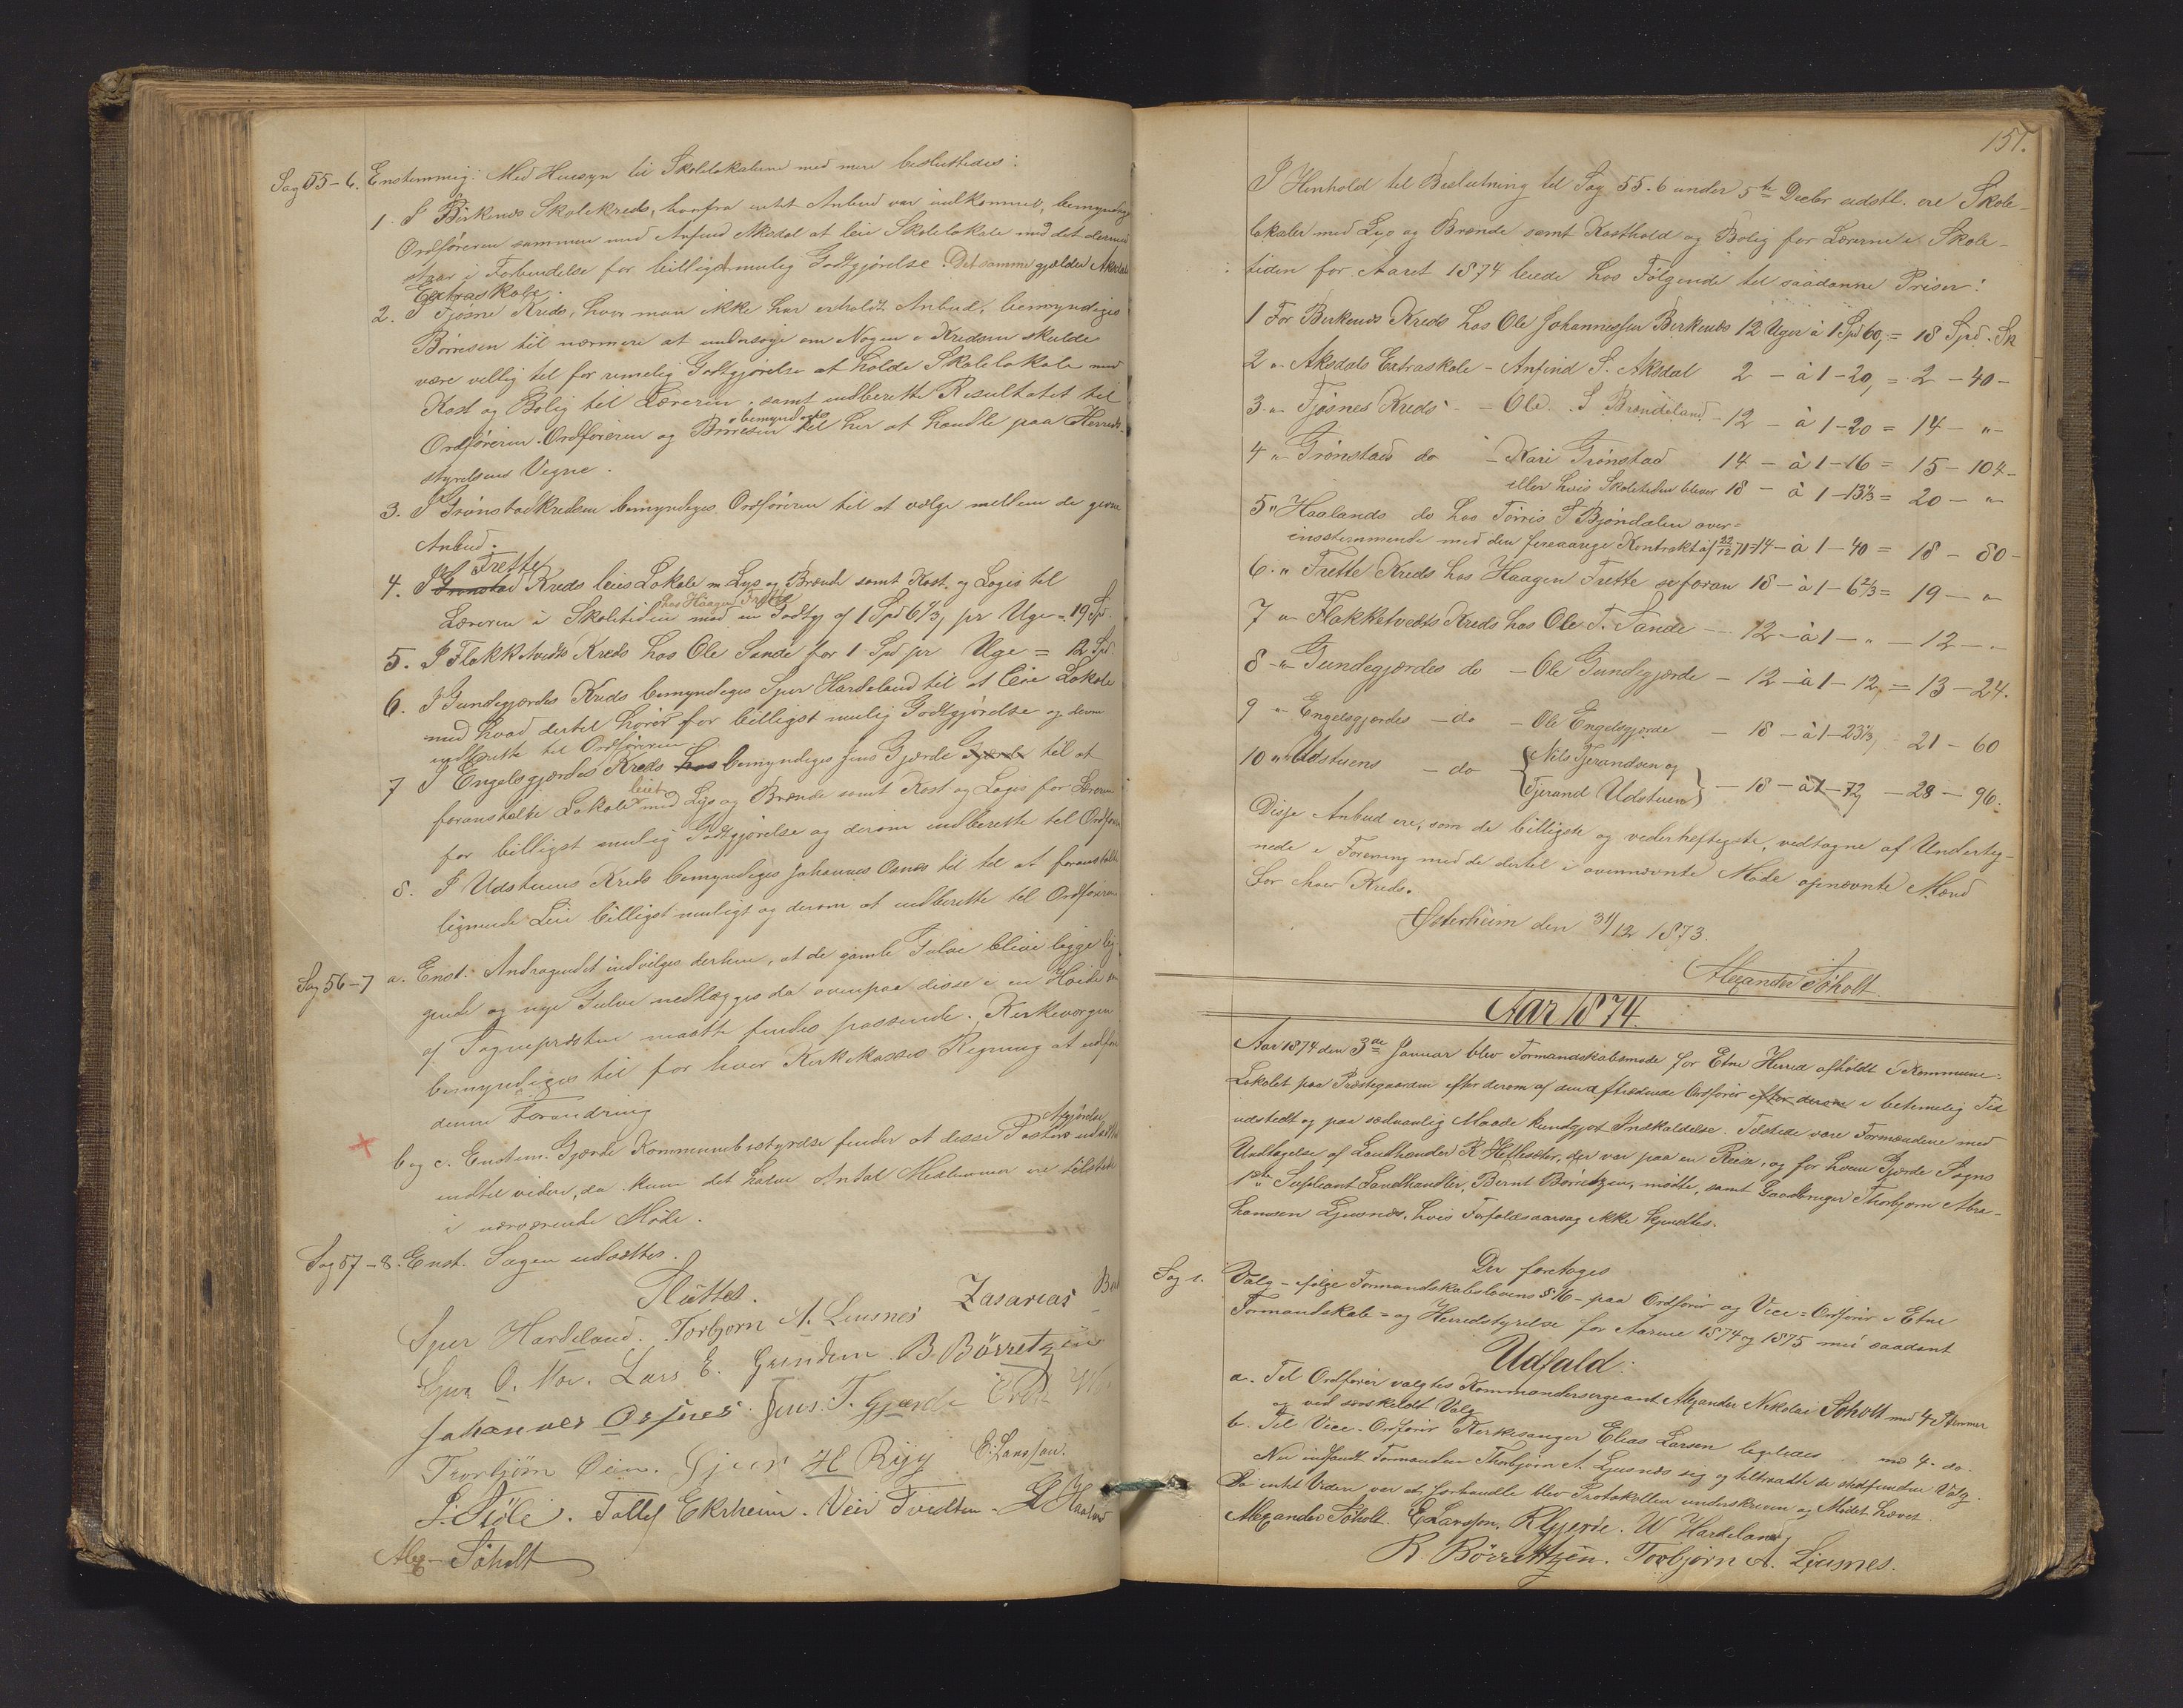 Sag 55-6. Enstemmig: Med Hensyn til Skolelokalerne med mere besluttedes:
1. I Birkenes Skolekreds, hvorfra intet Anbud var indkommet, bemyndiges
Ordføreren sammen med Anfind Aksdal at leie Skolelokale med det dermed
staar i Forbindelse for billigst mulig Godtgjørelse. Det samme gjælder Aksdals
Extraskole.
2. I Fjøsne Kreds, hvor man ikke har erholdt Anbud, bemyndiges
Børresen til nærmere at undersøge om Nogen i Kredsen skulde
være villig til for rimelig Godtgjørelse at holde Skolelokale med
Kost og Bolig til Læreren, samt indberette Resultatet til
Ordføreren. Ordføreren og Børresen bemyndiges til her at handle paa Herreds-
styrelsens Vegne.
3. I Grønstadkredsen bemyndiges Ordføreren til at vælge mellem de gjorte
Anbud.
4. I Grønstad Frette Kreds leies Lokale m Lys og Brænde samt Kost og Logis til
Læreren i Skoletiden hos Haagen Frette mod en Godtg af 1 Spd 6 2/3 pr Uge = 19 Spd.
5. I Flokketvedts Kreds hos Ole Sande for 1 Spd pr Uge = 12 Spd.
6. I Gundegjerdes Kreds bemyndiges Sjur Hardeland til at leie Lokale
med hvad dertil hører for billigst mulig Godtgjørelse og derom
indberette til Ordføreren.
7 I Engelsgjerdes Kreds hos bemyndiges Jens Gjærde Gjærde til at
foranstalte Lokale leiet med Lys og Brænde samt Kost og Logis for Læreren
for billigst mulig Godtgjørelse og derom indberette til Ordføreren
8. I Udstuens Kreds bemyndiges Johannes Osnes til til at foranstalte
lignende Leie billigst muligt og derom at indberette til Ordføreren
Sag 56-7 a. Enst. Andragendet indvilges derhen, at de gamle Gulve blive ligge lig-
gende og nye Gulve nedlægges da ovenpaa disse i en Høide som
af Sognepræsten maatte findes passende. Kirkeværgen
bemyndiges til for hver Kirkekasses Regning at udføre
denne Forandring
b og c. Enstem. Gjærde Kommunebestyrelse finder at disse Posters Afgjørelse udsættes
indtil videre, da kun det halve Antal Medlemmer ere tilstede
i nærværende Møde.
Sag 57-8. Enst. Sagen udsættes.
Sluttes.
Sjur Hardeland. Torbjørn A. Lusnes Zasarias
O. Moe. Lars E. Grinden B. Børretzen
Johannes Osnes Jens T. Gjærde
Torbjørn Øien. H Rygg E. Larsson.
S. Støle. Tollef Ekrheim. Veir Tvedten
Alex Søholt
151.
I Henhold til Beslutning til Sag 55.6 under 5te Decbr sidstl. ere Skole-
lokaler med Lys og Brænde samt Kosthold og Bolig for Lærerne i Skole-
tiden for Aaret 1874 leiede hos Følgende til saadanne Priser:
1 For Birkenes Kreds hos Ole Johannessen Berkenes 12 Uger à 1 Spd 60, = 18 Spd. Sk
2 " Aksdals Extraskole - Anfind S. Aksdal 2 - à 1-20, = 2 - 40 -
3 " Fjøsnes Kreds - Ole S Brændeland - 12 - à 1-20 = 14 - " -
4 " Grønstads do - Kari Grønstad 14 - à 1-16 = 15 - 104 -
eller hvis Skoletiden bliver 18 - à 1-13 1/3 = 20 - "
5 " Haalands do hos Tørris T Bjøndalen over-
ensstemmende med den fireaarige Kontrakt af 22/12 71 - 14 - à 1-40 = 18 - 80 -
6. " Frette Kreds hos Haagen Frette se foran 18 - à 1-6 2/3 = 19 - "
7 " Flokketvedts Kreds hos Ole T. Sande - 12 - à 1 - " - 12 - "
8 - " Gundegjerdes do - Ole Gundegjerde - 12 - à 1-12, = 13 - 24.
9 " Engelsgjerdes - do - Ole Engelsgjerde - 18 - à 1-23 1/3, - 21 - 60
10 " Udstuens - do - { Nils Tjerandsen og
Tjerand Udstuen } - 18 - à 1-72, - 28 - 96.
Disse Anbud ere, som de billigste og vederheftigste, vedtagne af Underteg-
nede i Forening med de dertil i ovennævnte Møde opnævnte Mænd
for hver Kreds.
Østerheim den 31/12 1873.
Alexander Søholt
Aar 1874.
Aar 1874 den 3die Januar blev Formandskabsmøde for Etne Herred afholdt i Kommune-
Lokalet paa Præstegaarden efter derom af den aftrædende Ordfører efter derom i betimelig Tid
udstedt og paa sædvanlig Maade kundgjort Indkaldelse. Tilstede vare Formændene med
Undtagelse af Landhandler R Hetlesæter, der var paa en Reise, og for hvem Gjærde Sogns
1ste Supleant Landhandler, Bernt Børretzen, mødte, samt Gaardbruger Thorbjørn Abra-
hamsen Ljusnes, hvis Forfaldsaarsag ikke kjendtes.
Der foretoges
Sag 1. Valg - ifølge Formandskabslovens § 16 - paa Ordfører og Vice-Ordfører i Etne
Formandskabs- og Herredstyrelse for Aarene 1874 og 1875 med saadant
Udfald:
a. Til Ordfører valgtes Kommandersergeant Alexander Nikolai Søholt med 4 Stemmer
og ved særskildt Valg
b. Til Vice-Ordfører Kirkesanger Elias Larsen ligeledes med 4 - do -
Nu indfandt Formanden Thorbjørn A. Ljusnes sig og tiltraadte de stedfundne Valg.
Da intet Videre var at forhandle blev Protokollen underskreven og Mødet hævet.
Alexander Søholt. E Larsson. R Gjerde. W Hardeland
B. Børretzen. Torbjørn A. Ljusnes.